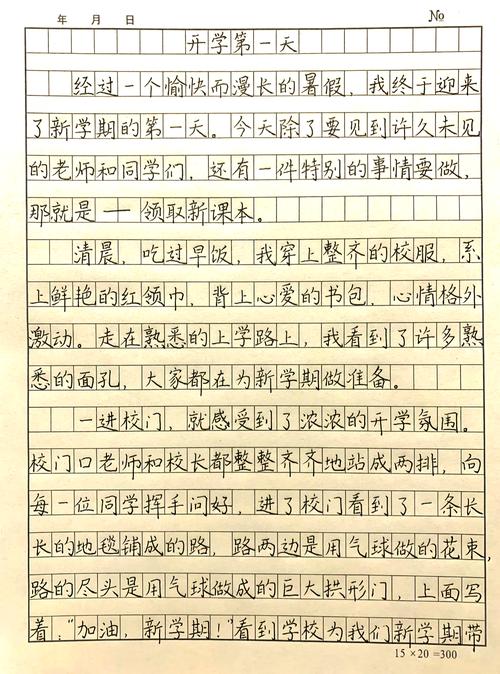 年 月 日 №
开学第一天
经过一个愉快而漫长的暑假，我终于迎来
了新学期的第一天。今天除了要见到许久未见
的老师和同学们，还有一件特别的事情要做，
那就是一领取新课本。
清晨，吃过早饭，我穿上整齐的校服，系
上鲜艳的红领巾，背上心爱的书包，心情格外
激动。走在熟悉的上学路上，我看到了许多熟
悉的面孔，大家都在为新学期做准备。
一进校门，就感受到了浓浓的开学氛围。
校门口老师和校长都整整齐齐地站成两排，向
每一位同学挥手问好，进了校门看到了一条长
长的地毯铺成的路，路两边是用气球做的花束，
路的尽头是用气球做成的巨大拱形门，上面写
着："加油，新学期！"看到学校为我们新学期带
15×20=300